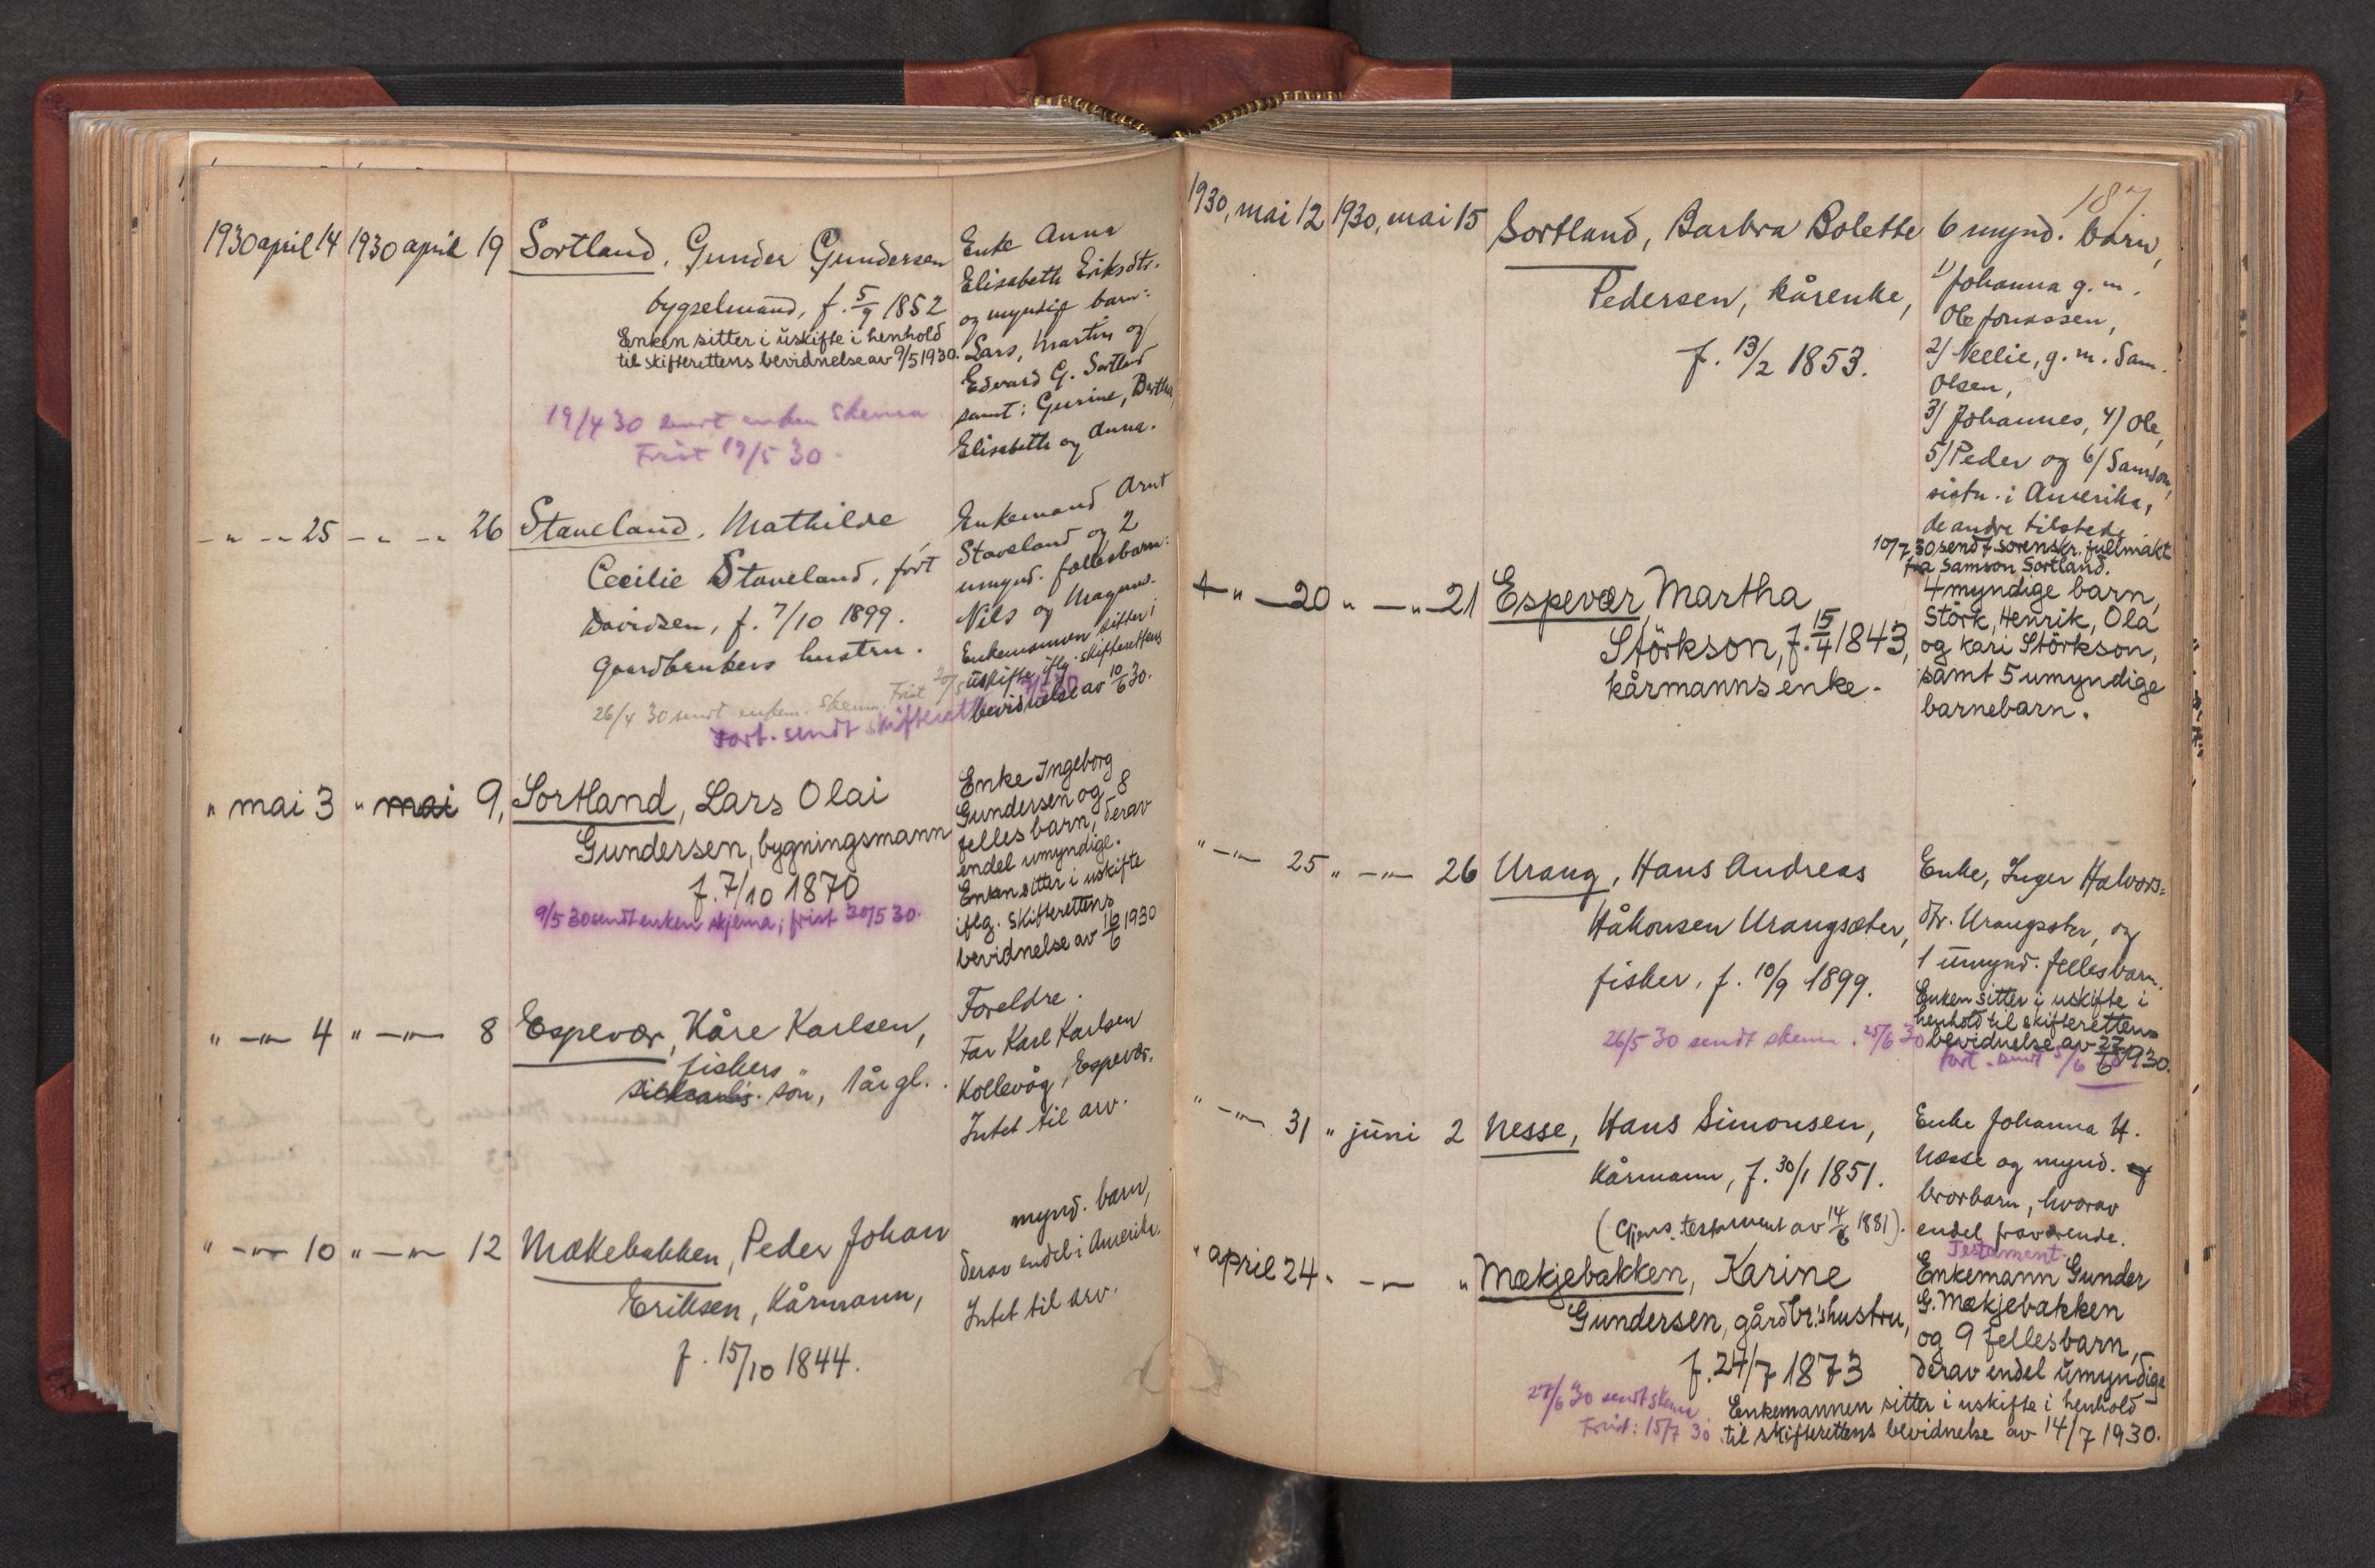 1930 april 14 1930 april 19 Sortland, Gunder Gundersen
bygselmand, f. 5/9 1852
Enken sitter i uskifte i henhold
til skifterettens bevidnelse av 9/5 1930.
19/4 30 sendt enken skema
Frist 19/5 30.
Enke Anna
Elisabeth Eriksdtr.
og myndig barn:
Lars, Martin og
Edvard G. Sortland
samt: Gurine, Bertha,
Elisabeth og Anna.
– " – " 25 – " – " 26 Staveland, Mathilde
Cecilie Staveland, født
Davidsen, f. 7/10 1899.
gaardbrukers hustru.
26/4 30 sendt enkem. skema. Frist 20/5
Fort. sendt skifterett
Enkemand Arnt
Staveland og 2
umynd. fællesbarn:
Nils og Magnus.
Enkemannen sitter i
uskifte iflg. skifterettens
bevidnelse av 10/6 30.
" mai 3 " mai 9, Sortland, Lars Olai
Gundersen, bygningsmann
f. 7/10 1870
9/5 30 sendt enken skjema; frist 30/5 30.
Enke Ingeborg
Gundersen og 8
felles barn, derav
endel umyndige.
Enken sitter i uskifte
iflg. skifterettens
bevidnelse av 16/6 1930
" – " – 4 " – " – 8 Espevær, Kåre Karlsen,
fiskers
søn, 1 år gl.
Foreldre.
Far Karl Karlsen
Kollevåg, Espevær.
Intet til arv.
" – " – 10 " – " – 12 Mækebakken, Peder Johan
Eriksen, Kårmann,
f. 15/10 1844.
mynd. barn,
derav endel i Amerika.
Intet til arv.
187
1930, mai 12 1930, mai 15 Sortland, Barbra Bolette
Pedersen, kårenke,
f. 13/2 1853.
6 mynd. barn,
1) Johanna g. m.
Ole Jonassen,
2) Neelie, g. m. Sam.
Olsen,
3) Johannes, 4) Ole,
5) Peder og 6) Samson,
sistn. i Amerika,
de andre tilstede
10/7 30 sendt sorenskr. fullmakt
fra Samson Sortland.
" – 20 " – " – 21 Espevær Martha
Störkson, f. 15/4 1843,
kårmanns enke.
4 myndige barn,
Störk, Henrik, Ola
og Kari Störkson,
samt 5 umyndige
barnebarn.
" – " – 25 " – " – 26 Urang, Hans Andreas
Håkonsen Urangsæter,
fisker, f. 10/9 1899.
26/5 30 sendt skema. 25/6 30
Enke, Inger Halvors=
dtr. Urangsæter, og
1 umynd. fellesbarn.
Enken sitter i uskifte i
henhold til skifterettens
bevidnelse av 27/6 1930.
Fort. sendt 5/6
" – " – 31 " juni 2 Nesse, Hans Simonsen,
Kårmann, f. 30/1 1851.
(Gjens. testament av 14/6 1881).
Enke Johanna H.
Næsse og mynd. og
brorbarn, hvorav
endel fraværende.
Testament.
" april 24 " – " – " Mækjebakken, Karine
Gundersen, gårdbr.'s hustru,
f. 24/7 1873
27/6 30 sendt skema
Frist: 15/7 30
Enkemann Gunder
G. Mækjebakken
og 9 fellesbarn,
derav endel umyndige
Enkemannen sitter i uskifte i henhold
til skifterettens bevidnelse av 14/7 1930.